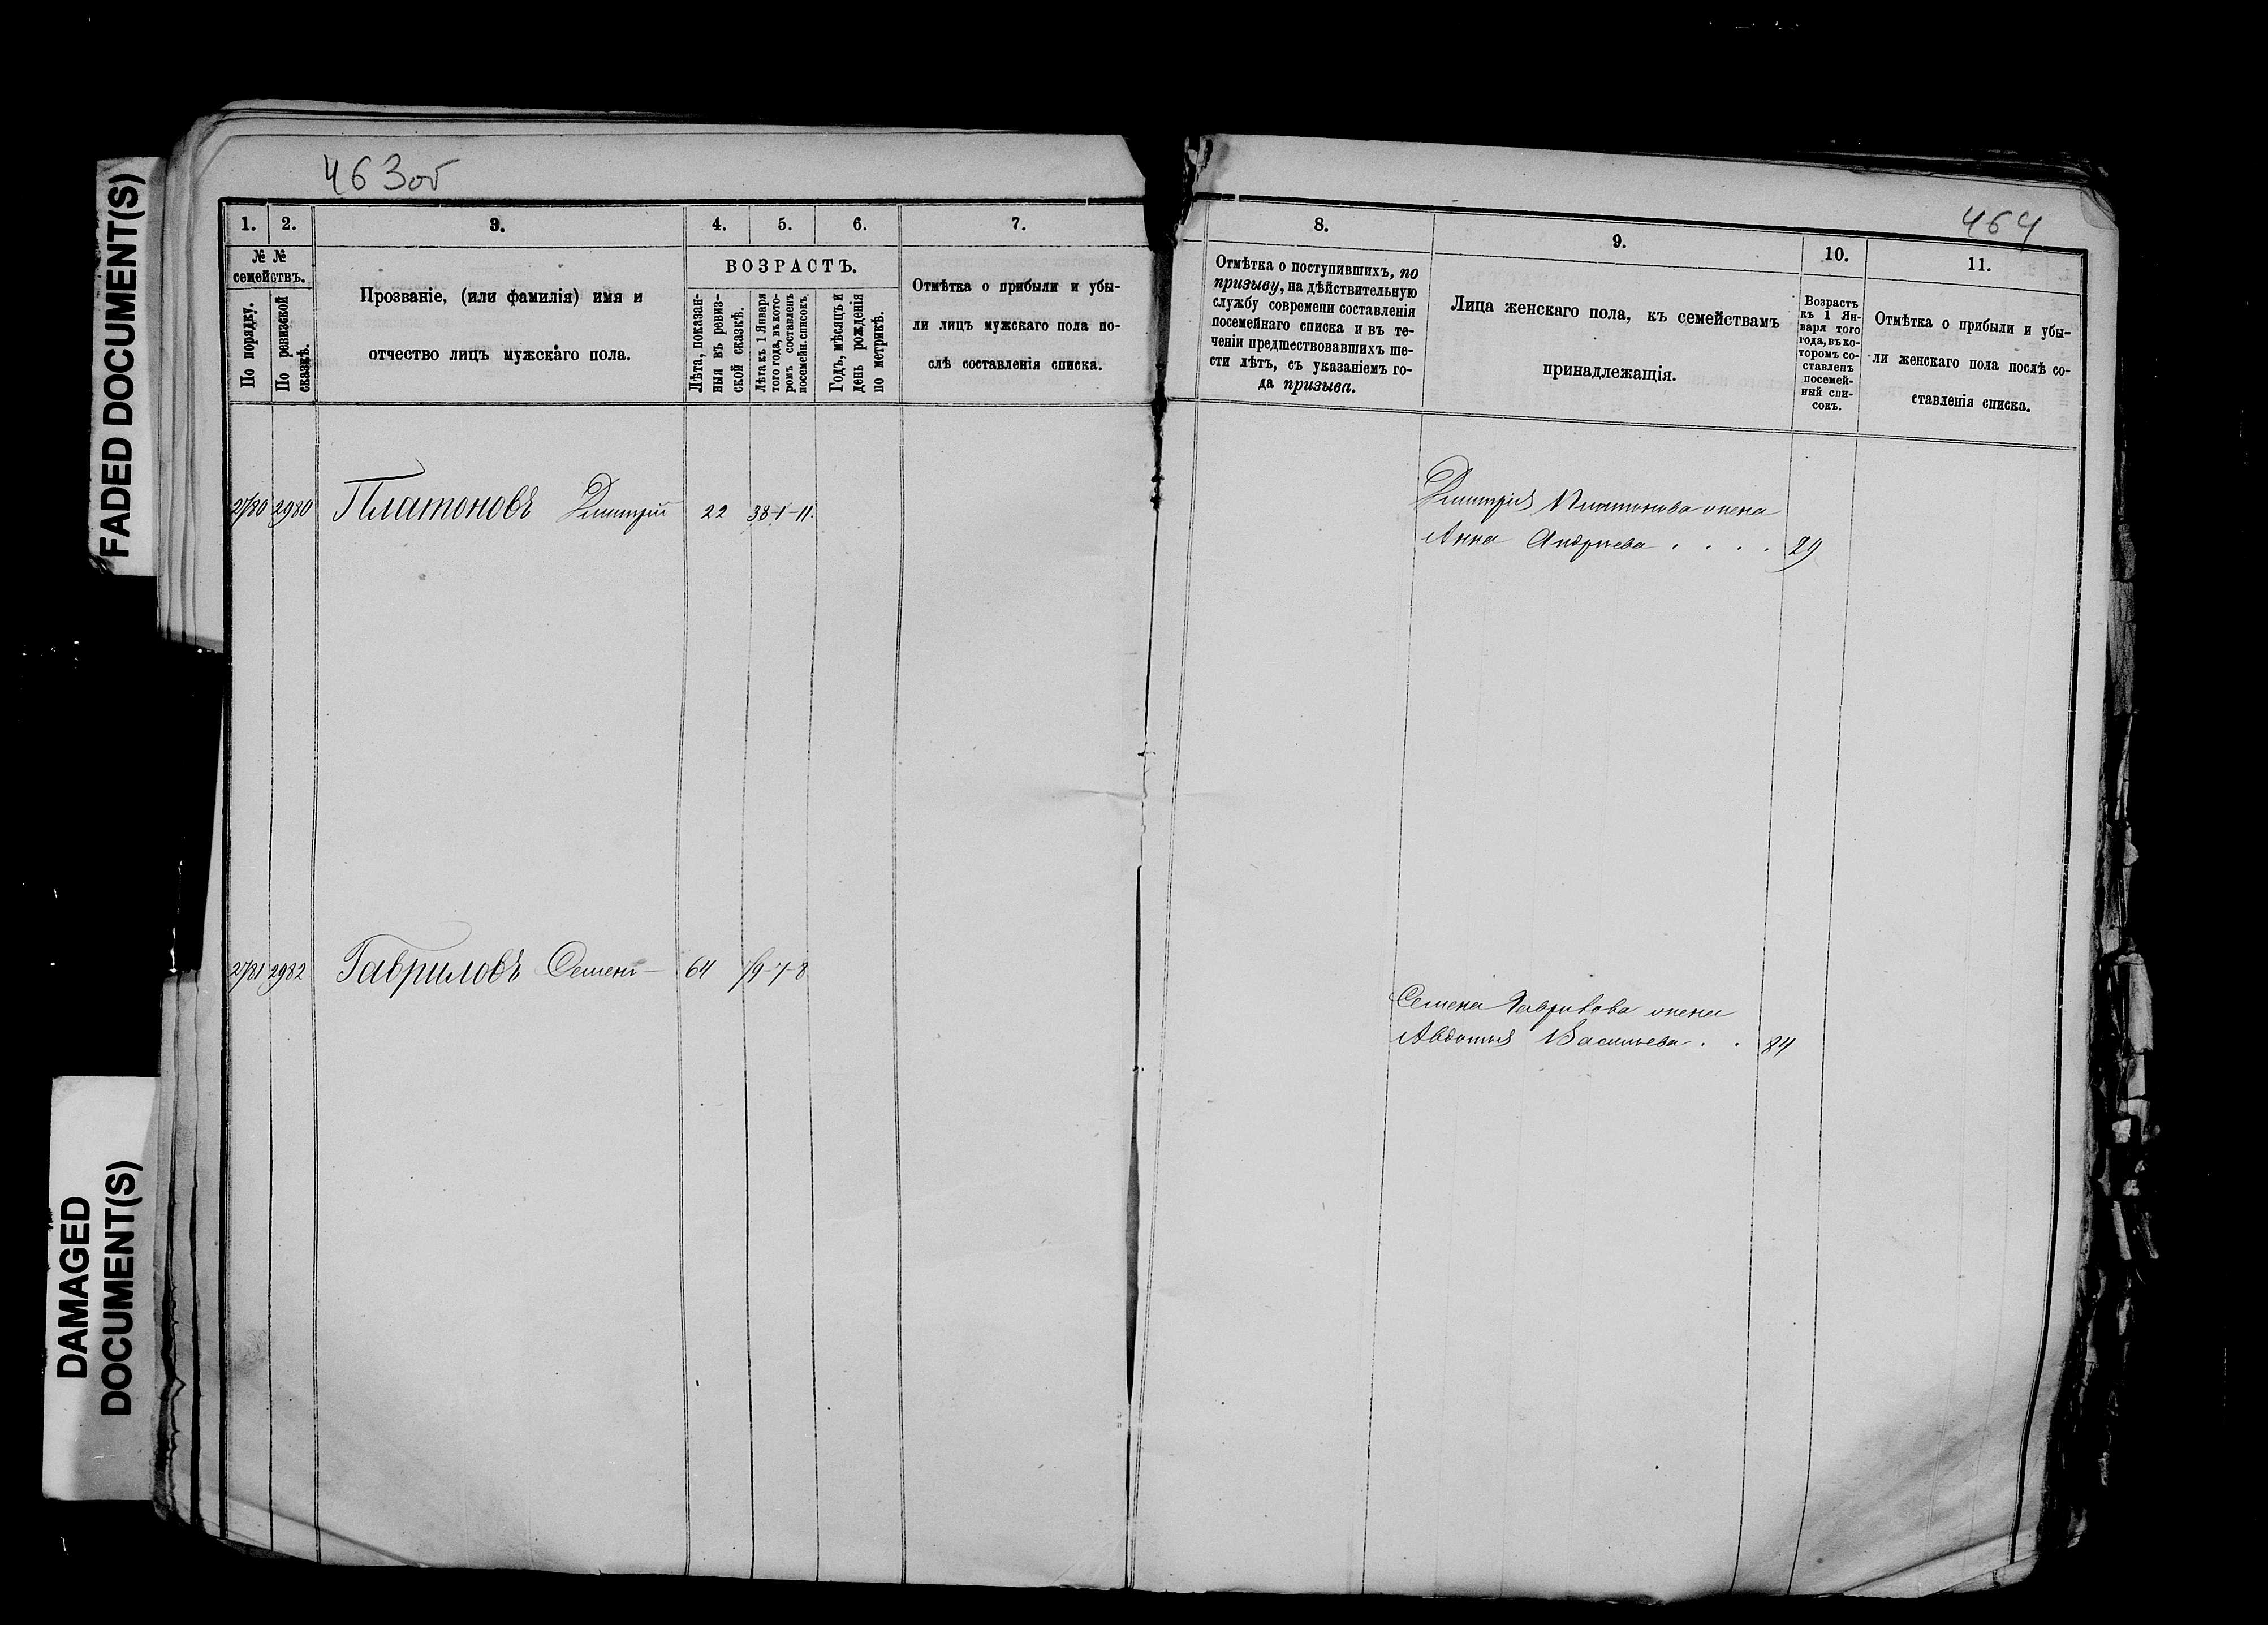 FADED DOCUMENT(S)
DAMAGED
DOCUMENT(S)
463об
1.
2.
3.
4.
5.
6.
7.
№ №
семействъ.
По порядку.
По ревизской
сказкѣ.
Прозваніе, (или фамилія) имя и
отчество лицъ мужскаго пола.
ВОЗРАСТЪ.
Лѣта, показан-
ныя въ ревиз-
ской сказкѣ.
Лѣта къ 1 Января
того года, въ кото-
ромъ составленъ
посемейн. списокъ.
Годъ, мѣсяцъ и
день рожденія
по метрикѣ.
Отмѣтка о прибыли и убы-
ли лицъ мужскаго пола по-
слѣ составленія списка.
2780 2980 Платоновъ Дмитрій 22 38-1-11.
2781 2982 Гавриловъ Семенъ — 64 79-7-8
464
8.
9.
10.
11.
Отмѣтка о поступившихъ, по
призыву, на дѣйствительную
службу современи составленія
посемейнаго списка и въ те-
ченіи предшествовавшихъ ше-
сти лѣтъ, съ указаніемъ го-
да призыва.
Лица женскаго пола, къ семействамъ
принадлежащія.
Возрастъ
къ 1 Ян-
варя того
года, въ ко-
торомъ со-
ставленъ
посемей-
ный спи-
сокъ.
Отмѣтка о прибыли и убы-
ли женскаго пола послѣ со-
ставленія списка.
Дмитрія Платонова жена
Анна Андреева . . . . 29
Семена Гаврилова жена
Авдотья Васильева . . 84